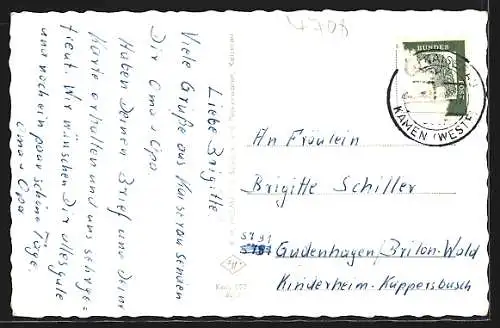 Liebe Brigitte
Viele Grüße aus Kaiserau senden
Dir Oma + Opa.
Haben Deinen Brief und Deine
Karte erhalten und uns sehr ge-
freut. Wir wünschen Dir alles gute
und noch ein paar schöne Tage.
Oma + Opa
BUNDES
POST
KAMEN (WESTF
An Fräulein
Brigitte Schiller
5791
5791
Gudenhagen/Brilon-Wald
Kinderheim-Küppersbusch